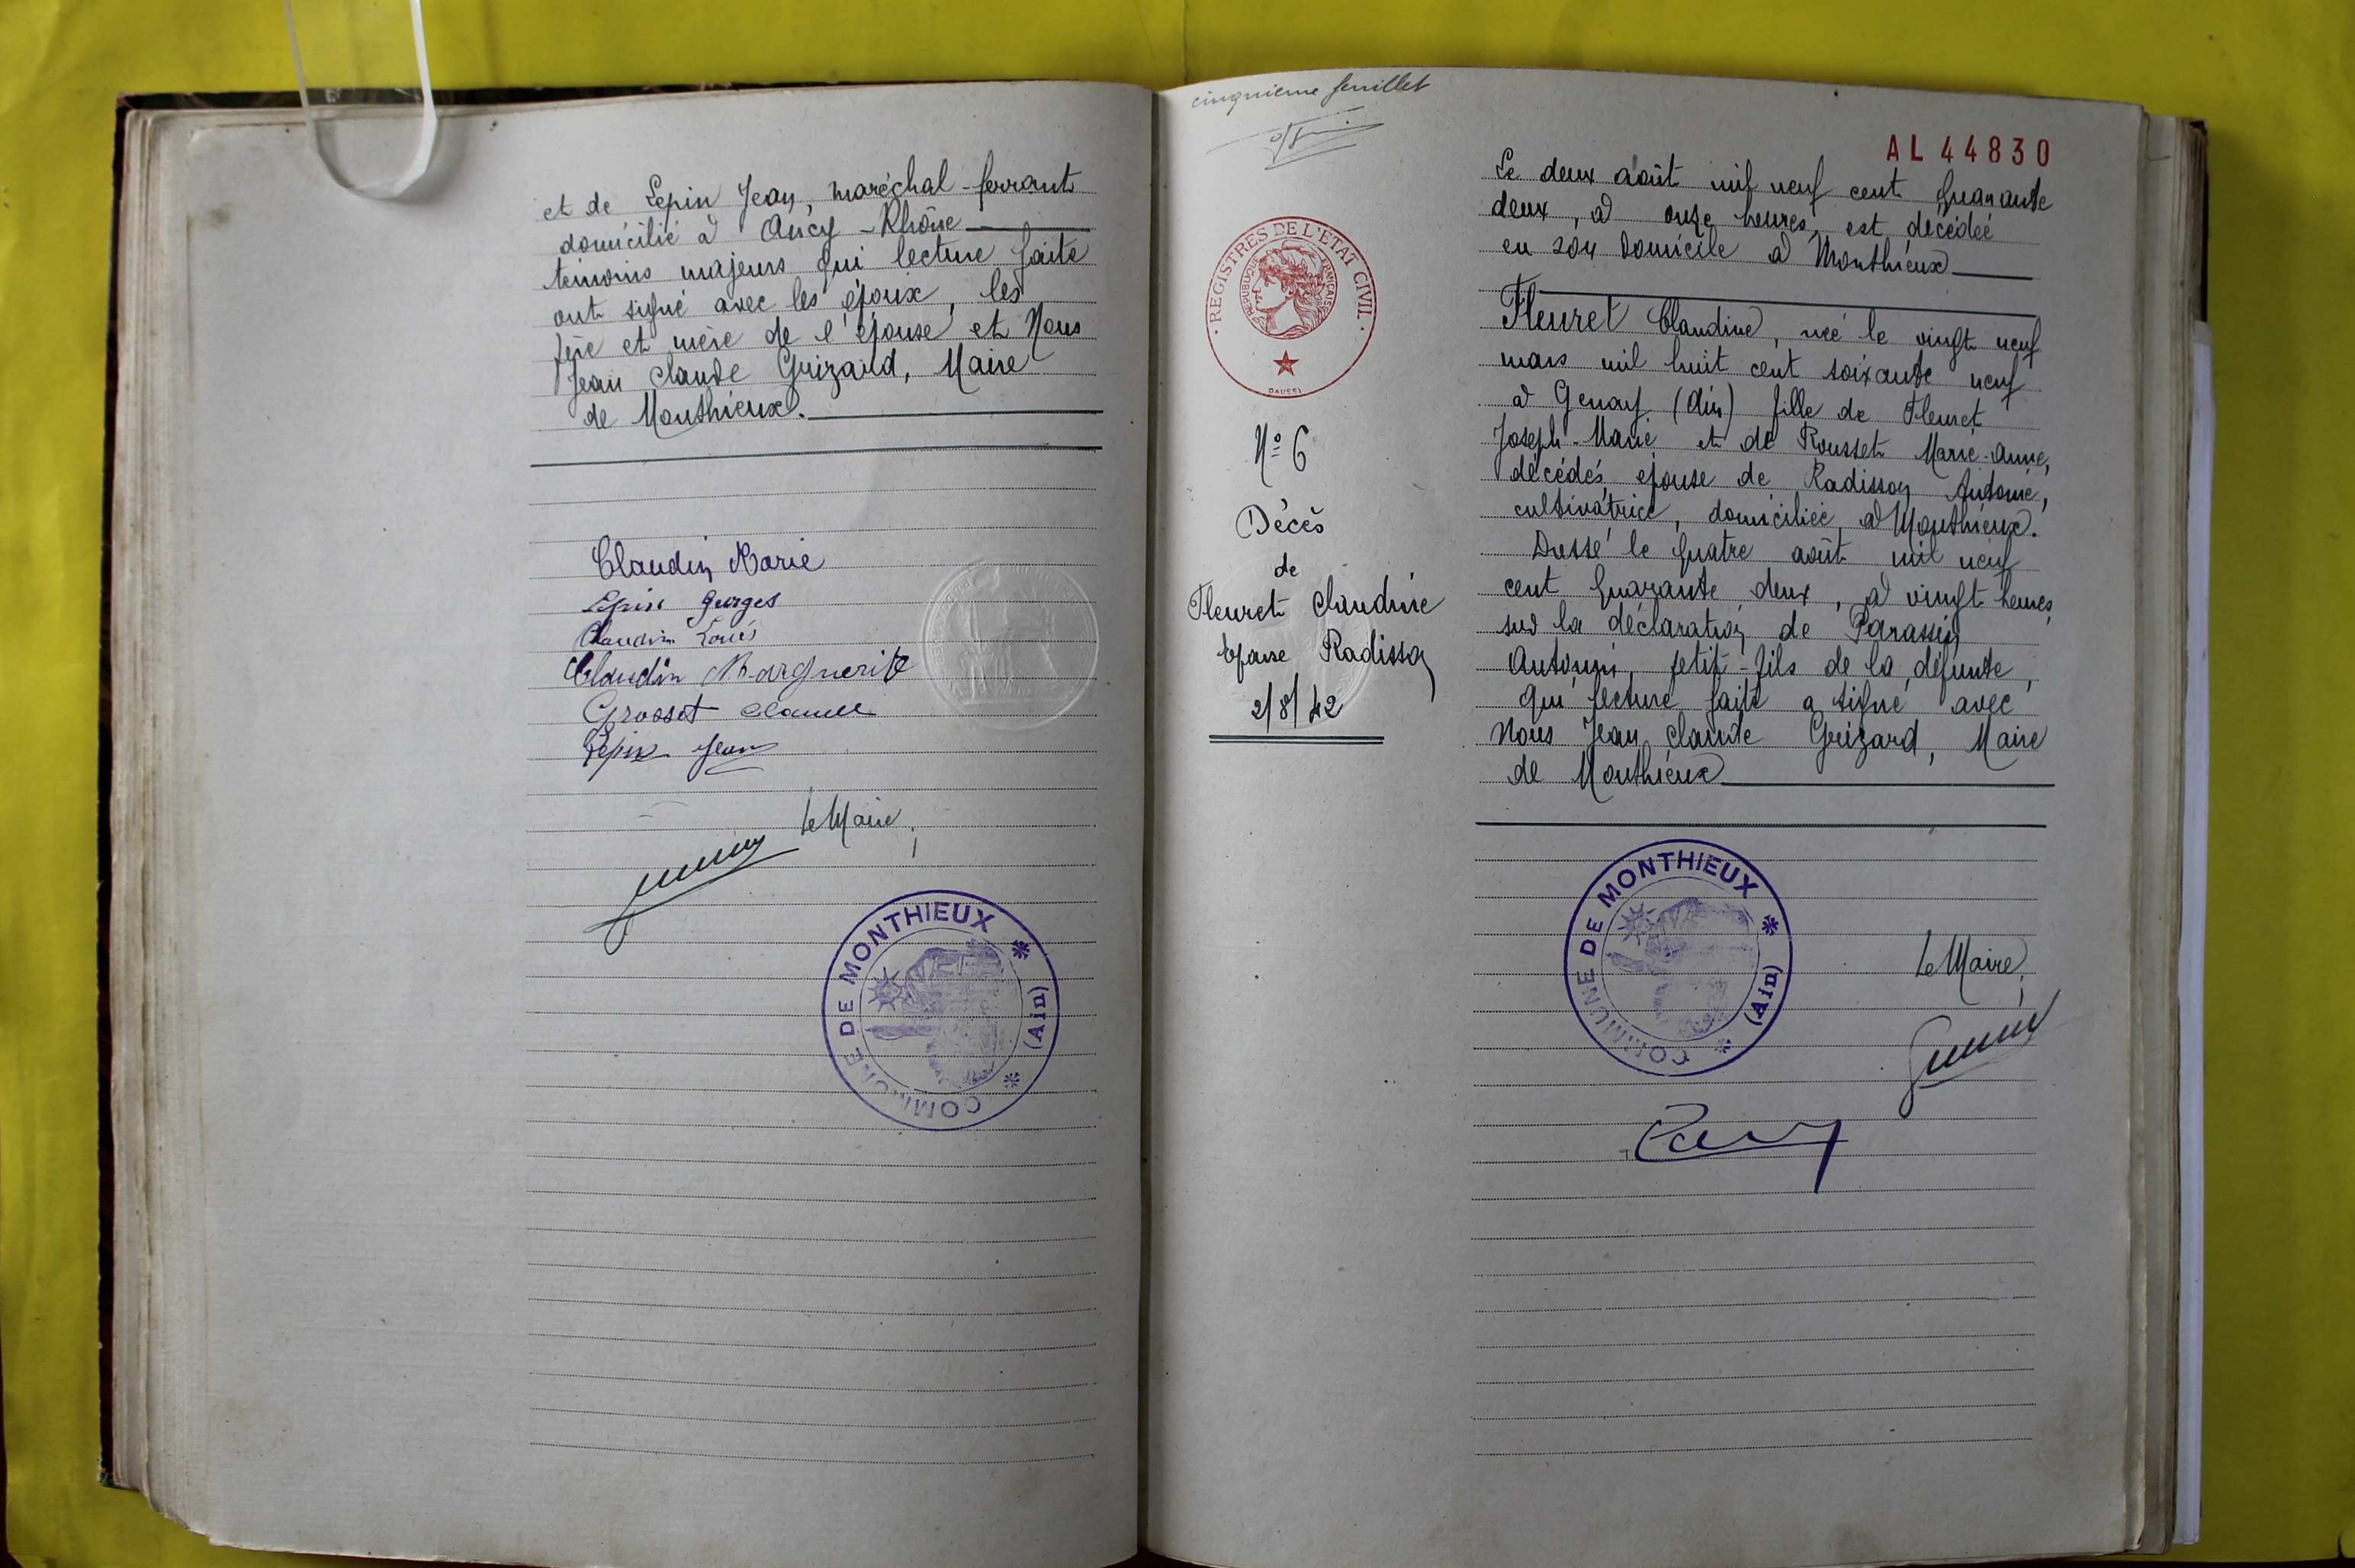 et de Lepin Jean, maréchal-ferrant
domicilié à Ancy-Rhône
témoins majeurs qui lecture faite
ont signé avec les époux, les
père et mère de l'épouse et Nous
Jean Claude Guizard, Maire
de Monthieux.
Claudin Marie
Lepin Georges
Claudin Louis
Claudin Marguerite
Grosset Claude
Lepin Jean
Le Maire,
COMMUNE DE MONTHIEUX
(Ain)
cinquième feuillet
REGISTRES DE L'ETAT CIVIL
REPUBLIQUE FRANÇAISE
DAUSSI
N° 6
Décès
de
Fleuret Claudine
Epouse Radisson
2/8/42
AL 44830
Le deux août mil neuf cent quarante
deux, à onze heures, est décédée
en son domicile à Monthieux
Fleuret Claudine, née le vingt neuf
mars mil huit cent soixante neuf
à Genay (Ain) fille de Fleuret
Joseph-Marie et de Rousset Marie-Anne,
décédés, épouse de Radisson Antoine,
cultivatrice, domiciliée à Monthieux.
Dressé le quatre août mil neuf
cent quarante deux, à vingt heures,
sur la déclaration de Parassin
Antonin, petit-fils de la défunte,
qui lecture faite a signé avec
Nous Jean Claude Guizard, Maire
de Monthieux
COMMUNE DE MONTHIEUX
(Ain)
Le Maire,